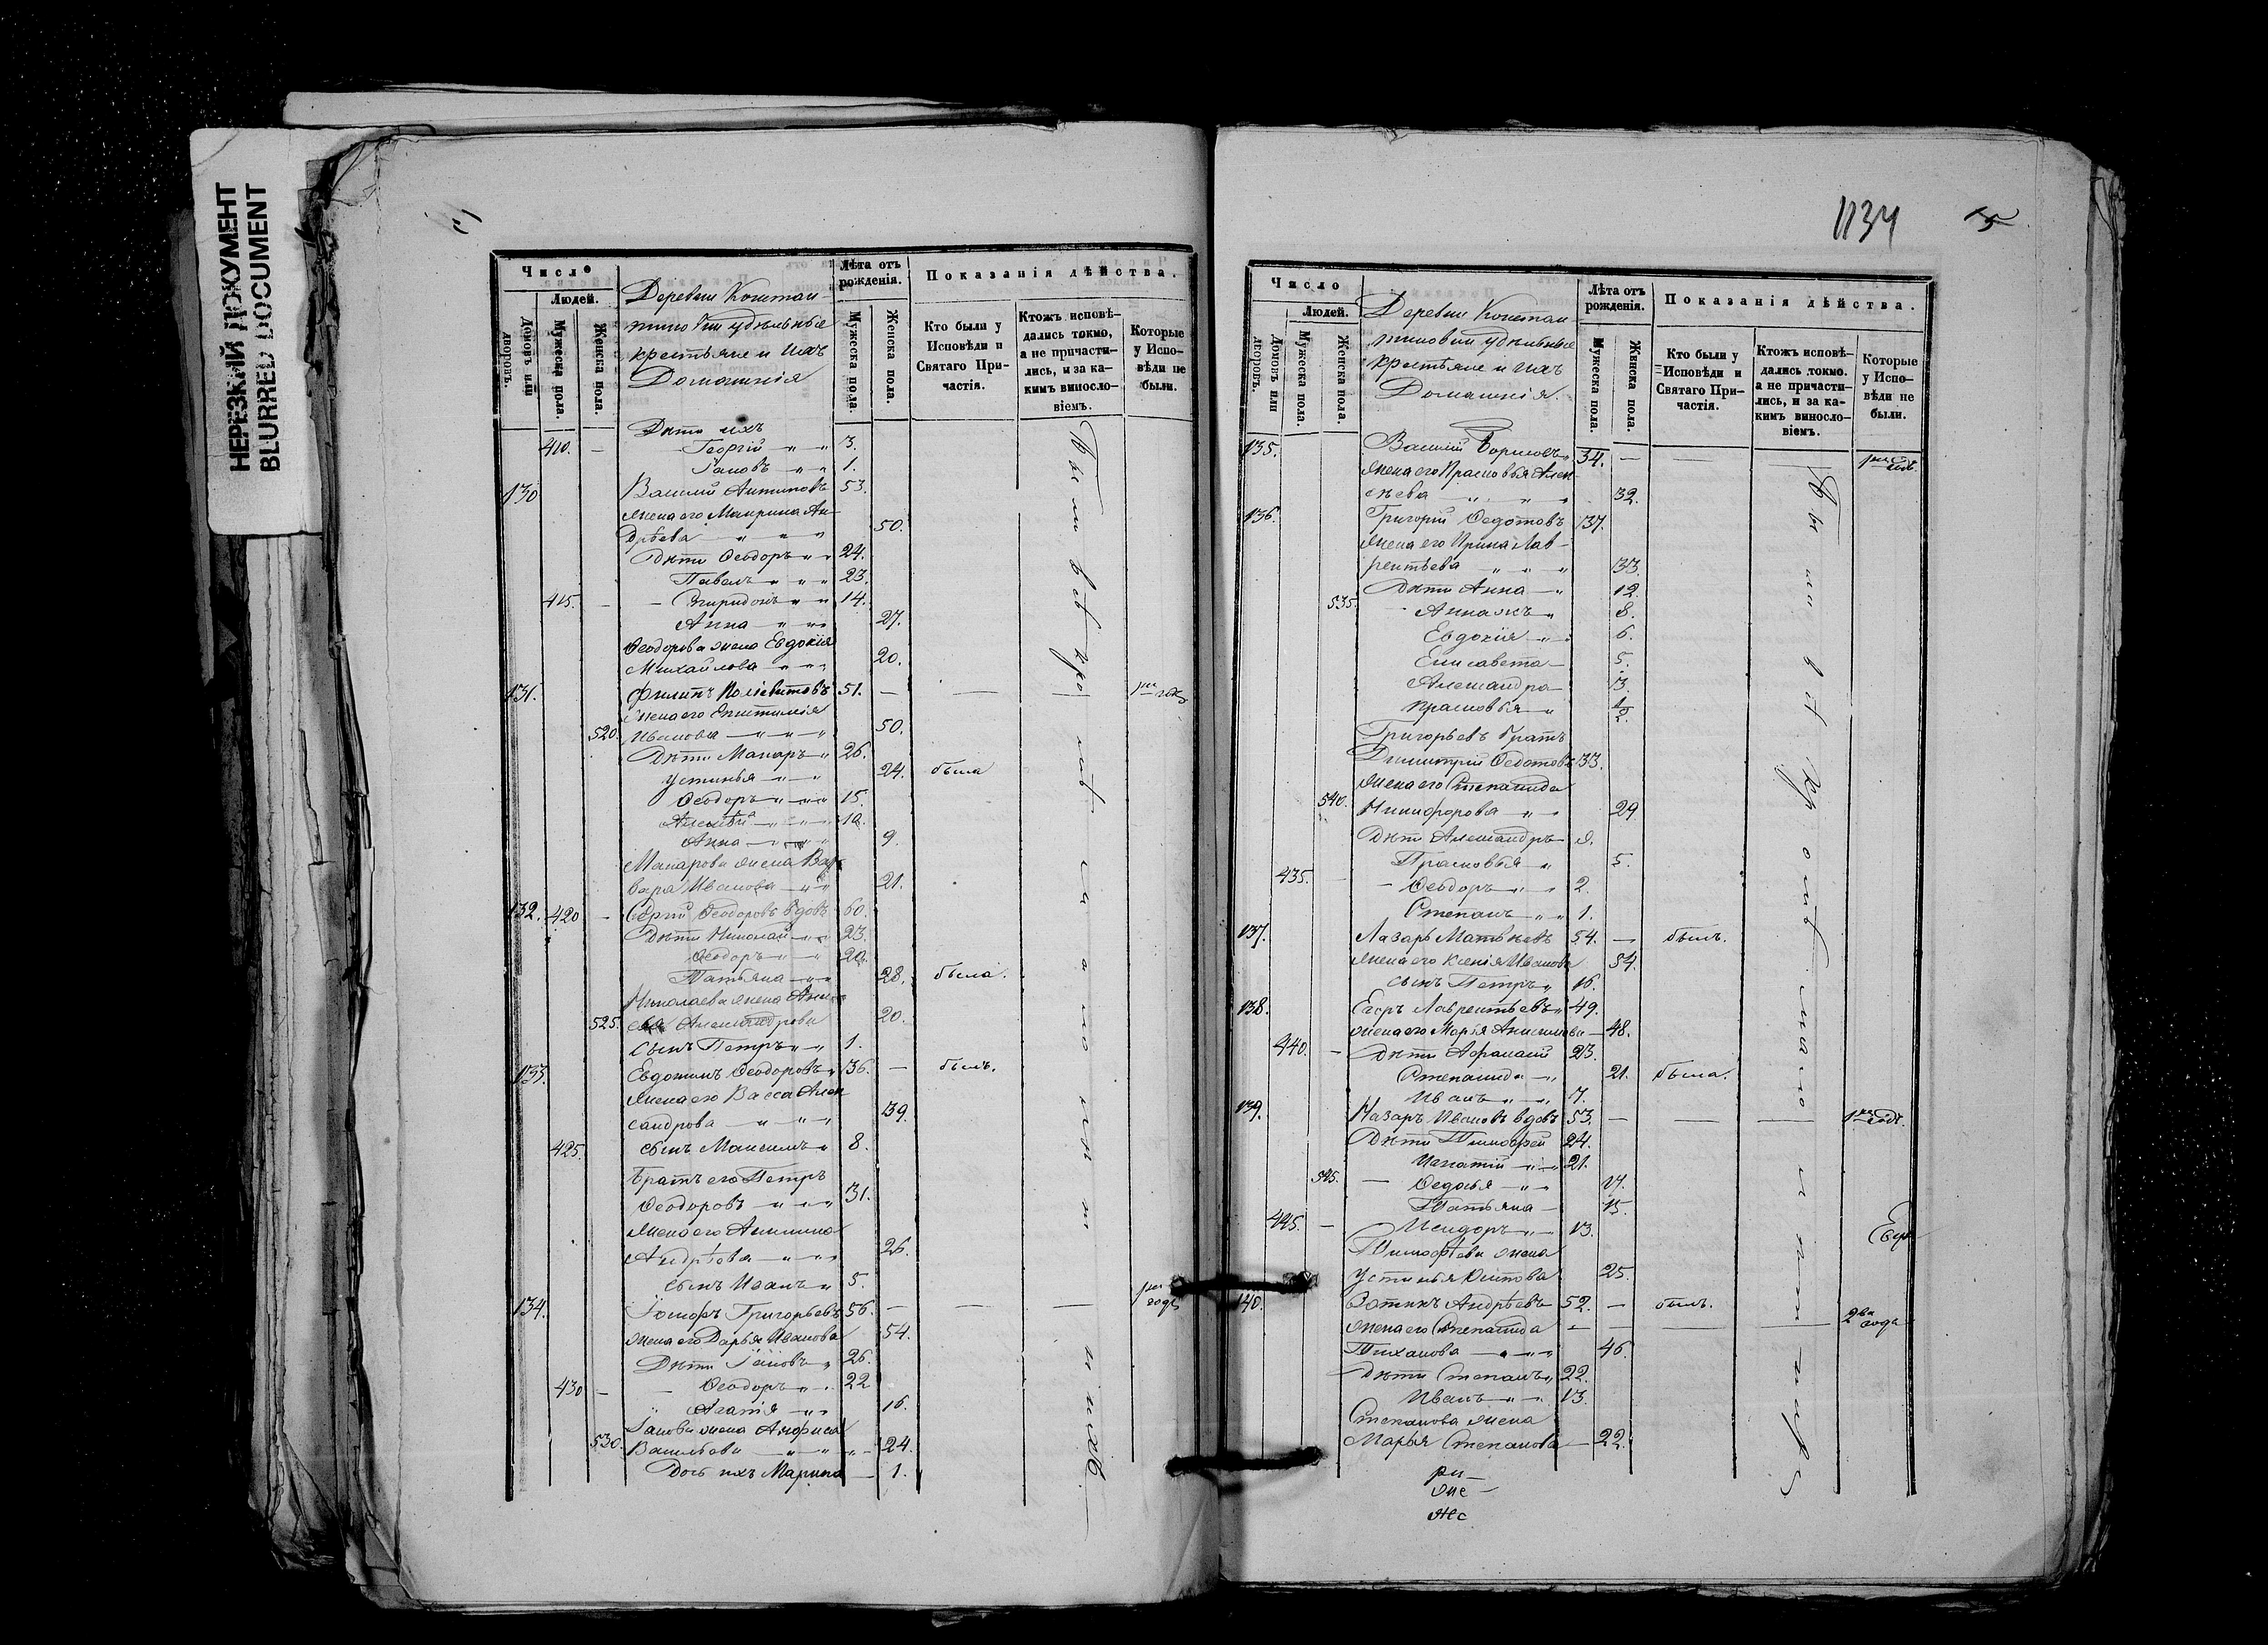 НЕРЕЗКИЙ ДОКУМЕНТ
BLURRED DOCUMENT
Число
Людей.
Домовъ или дворовъ.
Мужеска пола.
Женска пола.
Деревни Констан
тиновки удѣльные
крестьяне и ихъ
Домашнія
Лѣта отъ рожденія.
Мужеска пола.
Женска пола.
Показанія дѣйства.
Кто были у Исповѣди и Святаго Причастія.
Ктожъ исповѣдались токмо, а не причастились, и за какимъ винословіемъ.
Которые у Исповѣди не были.
Дѣти ихъ
410. — Георгій " " 3.
Іаковъ " " 1.
130 Василій Антиповъ 53.
жена его Маѵрина Ан-
дрѣева " " " 50.
Дѣти Ѳеодоръ " " 24.
Павелъ " " " 23.
415. — — Спиридонъ " " 14.
Анна — " " 27.
Ѳеодорова жена Евдокія
Михайлова " " " 20.
131. Филипъ 51. — —
жена его
520. Иванова — " " " 50.
Дѣти Макаръ " 26.
Устинья — " " 24. была
Ѳеодоръ " " " 15.
Алексѣй " " 10.
Анна — " " 9.
Макарова жена Вар
вара Иванова — " " 21.
132. 420 — Сергій Ѳеодоровъ вдовъ 60.
Дѣти Николай — " 23.
Ѳеодоръ " " 20.
Татьяна " " 28. была.
Николаева жена
525. Александрова 20.
сынъ Петръ " " 1.
133. Евдокимъ Ѳеодоровъ " 36. — былъ.
жена его Васса Алек
сандрова " " " 39.
425. сынъ Максимъ " 8.
Братъ его Петръ
Ѳеодоровъ " " " 31.
жена его Акилина
Андрѣева — " " " 26.
сынъ Иванъ " 5.
134. Іосифъ Григорьевъ 56. — — — годъ
жена его Дарья Иванова 54.
Дѣти Іаковъ " 26.
430 — — Ѳеодоръ " " 22
Агапія " " 16.
Іакова жена Анфиса
530. Васильева " " " — 24.
Дочь ихъ Марина — 1.
Были всѣ кромѣ
1134
15
Число
Людей.
Домовъ или дворовъ.
Мужеска пола.
Женска пола.
Деревни Констан
тиновки удѣльные
крестьяне и ихъ
Домашнія.
Лѣта отъ рожденія.
Мужеска пола.
Женска пола.
Показанія дѣйства.
Кто были у Исповѣди и Святаго Причастія.
Ктожъ исповѣдались токмо. а не причастились, и за какимъ винословіемъ.
Которые у Исповѣди не были.
135. Василій Борисовъ " 34. — — —
жена его Прасковья Алек
сѣева " " " 32.
136. Григорій Ѳедотовъ 37.
жена его Ирина Лав-
рентьева " " " 33
Дѣти Анна — " 12.
535. — Анна жъ " 8.
Евдокія " " 6.
Елисавета — 5.
Александра — 3.
Прасковья " ½.
Григорьевъ братъ
Димитрій Ѳедотовъ 33.
жена его Степанида
540. Никифорова " " 29
Дѣти Александръ —
Прасковья " 5.
435. — — Ѳеодоръ " " 2.
Степанъ " " 1.
137. Лазарь Матвѣевъ 54. — былъ.
жена его Ксенія Иванова 54.
сынъ Петръ " 16.
138. Егоръ Лаврентьевъ " 49.
жена его Марья Анисимова — 48.
440. — Дѣти Аѳанасій 23.
Степанида — " 21. была.
Иванъ " " 7.
139. Назаръ Ивановъ вдовъ 53. — — — годъ.
Дѣти Тимоѳей 24.
Игнатій " " 21.
545. — Ѳедосья — " " 17.
Татьяна — 15.
445. — Исидоръ " " 13.
Тимоѳеева жена
Устинья 25.
140. Андрѣевъ 52. — былъ.
жена его Степанида — — — — 2 года
Тиханова — " " " 46.
Дѣти Степанъ " 22.
Иванъ " " 13.
Степанова жена
Марья Степанова — 22.
Были всѣ кромѣ